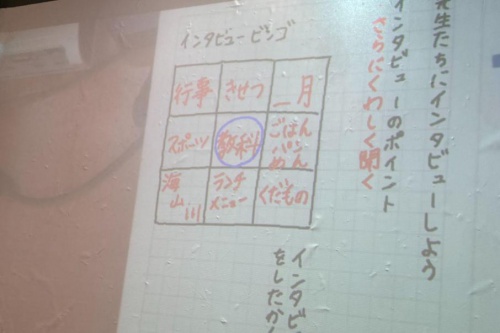 先生たちにインタビューしよう
インタビューのポイント
さらにくわしく聞く
インタビュービンゴ
行事 きせつ 一月
スポーツ 教科 ごはん
パン
めん
海
山
川 ランチ
メニュー くだもの
インタビ
をしたか